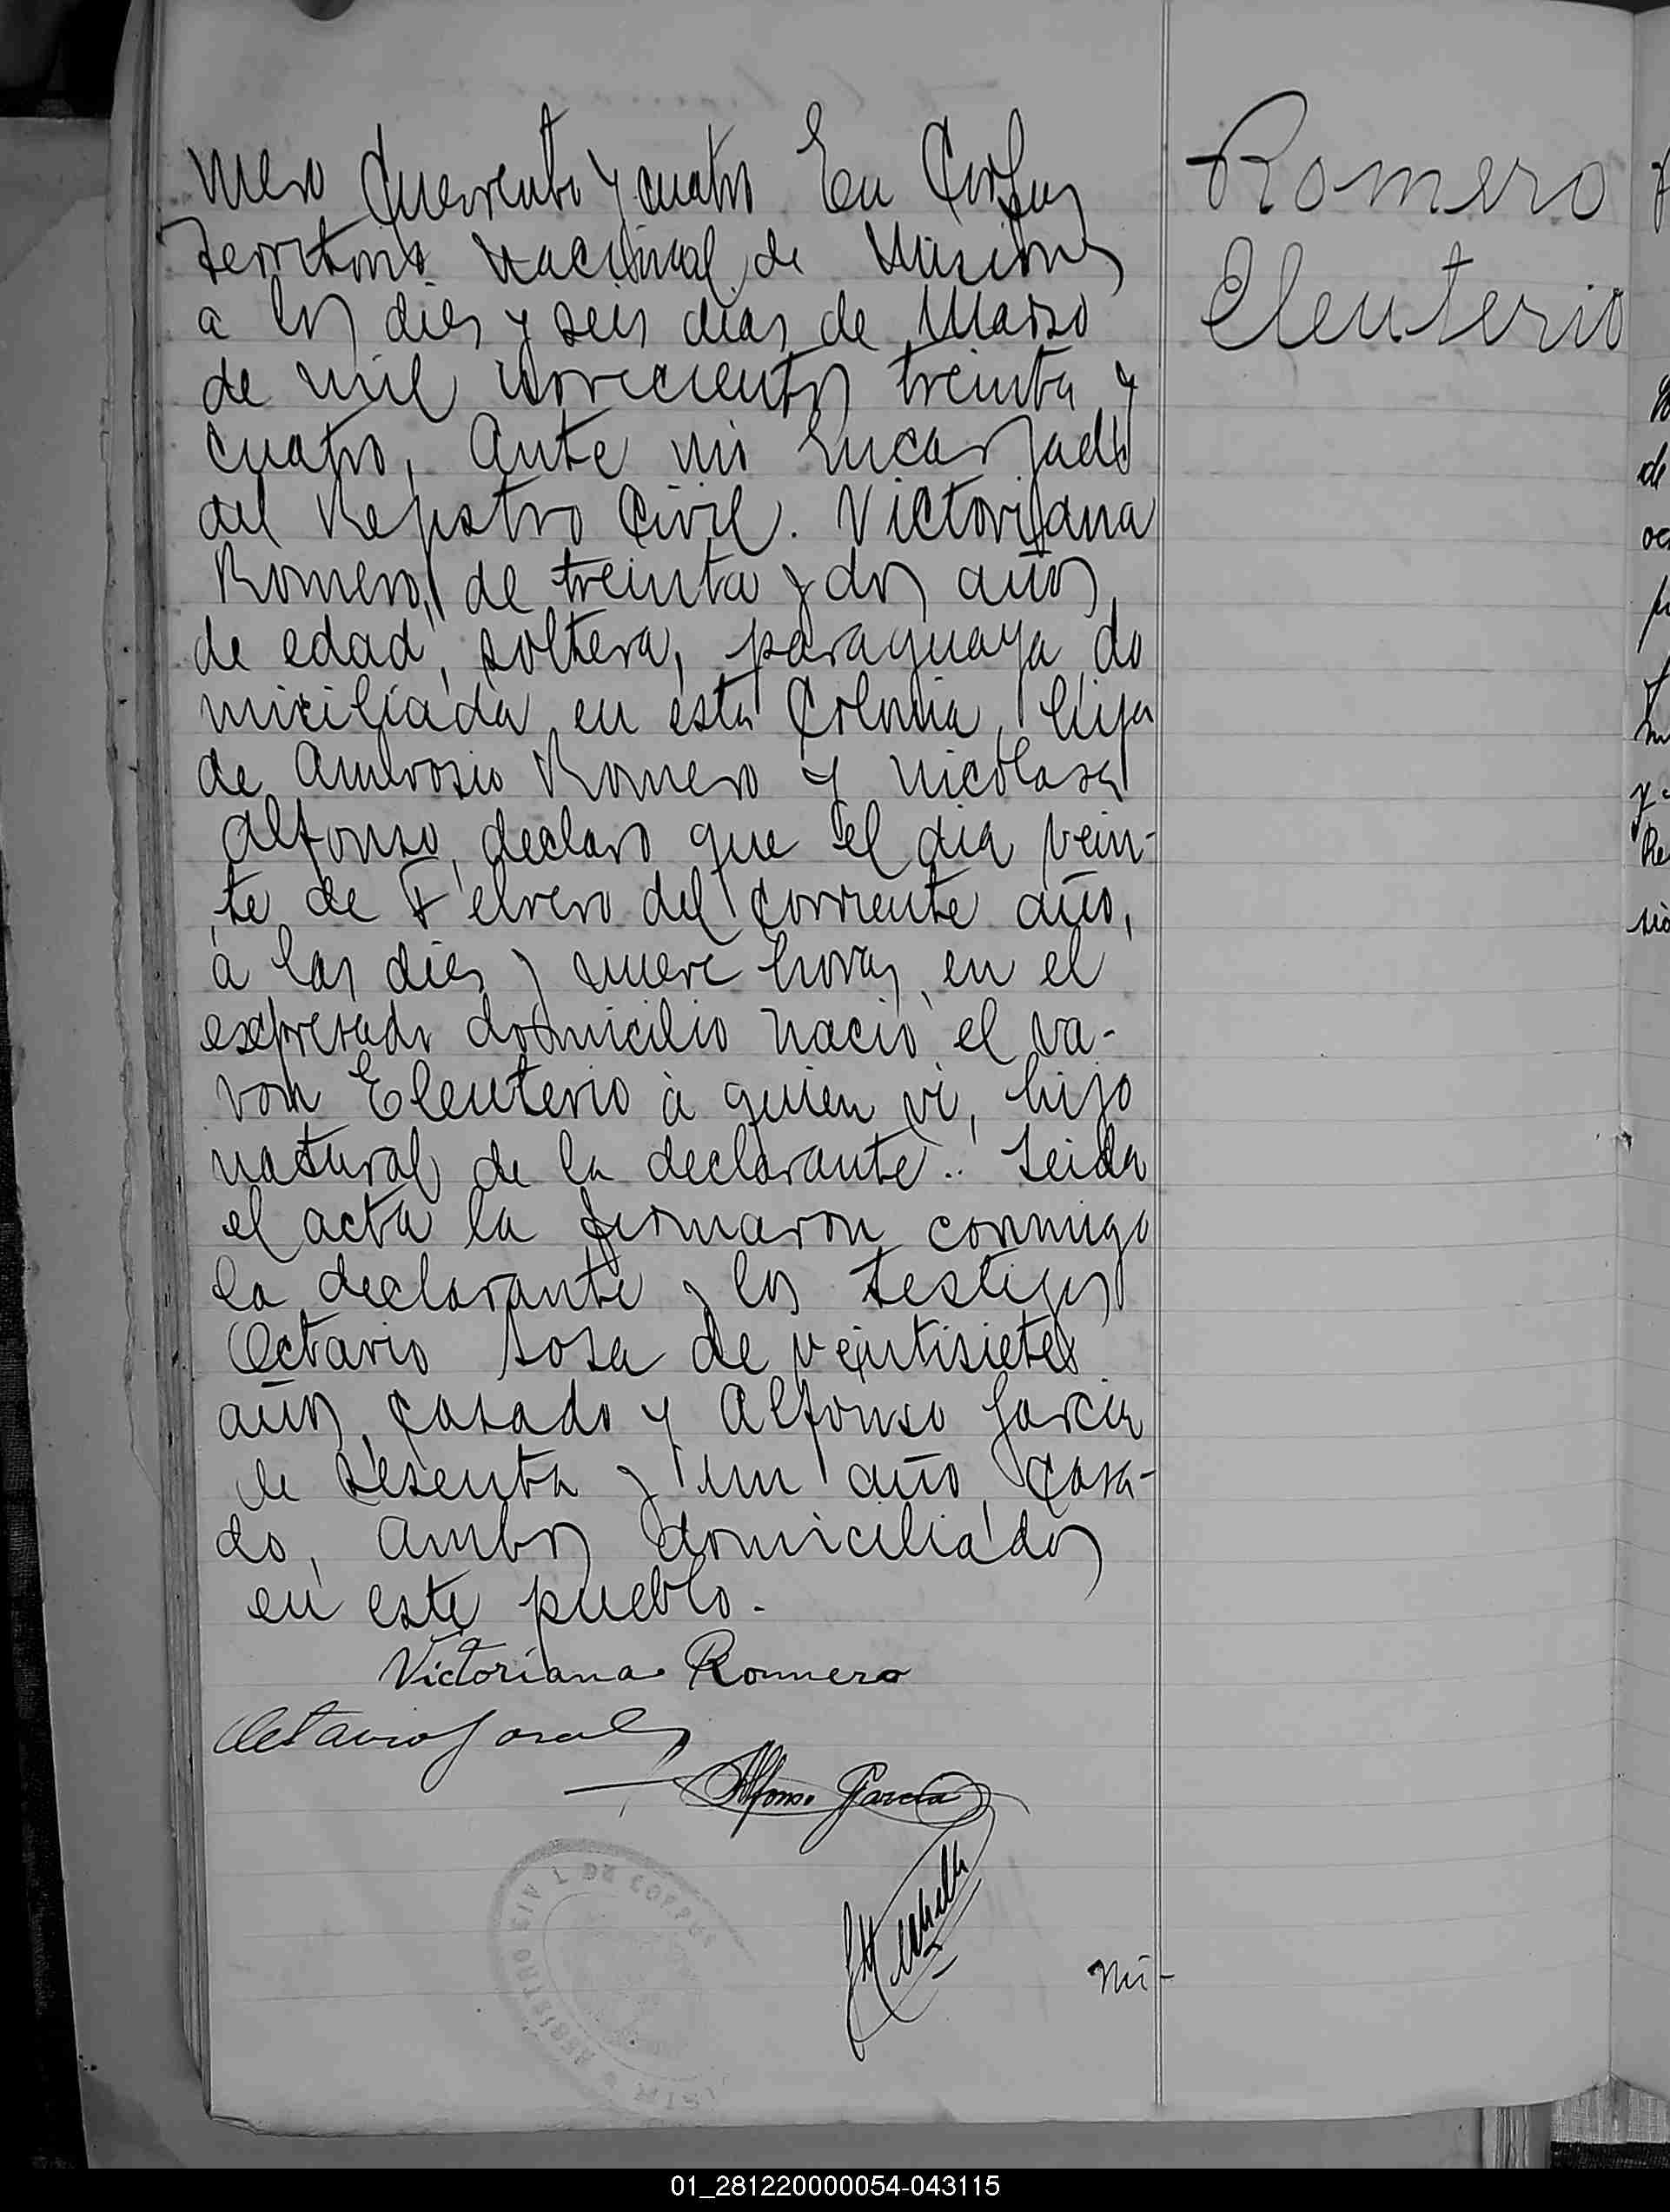 mero Cuarenta y cuatro En Corpus
Territorio Nacional de Misiones
a los dies y seis dias de Marzo
de mil novecientos treinta y
cuatro, Ante mi Encargado
del Rejistro Civil. Victoriana
Romero, de treinta y dos años
de edad, soltera, paraguaya do
miciliada en esta Colonia, hija
de Ambrosio Romero y Nicolasa
Alfonso, declaro que el dia vein-
te de Febrero del corriente año,
á las dies y nueve horas en el
expresado domicilio nació el va-
ron Eleuterio à quien vi, hijo
natural de la declarante.. Leida
el acta la firmaron conmigo
la declarante y los testigos
Octavio Sosa de veintisiete
años, casado y Alfonso Garcia
de sesenta y un año, casa-
do, ambos domiciliados
en este pueblo.
Victoriana Romero
Octavio Sosa
Alfonso Garcia
Nú-
REGISTRO CIVIL DE CORPUS
Romero
Eleuterio
01_281220000054-043115